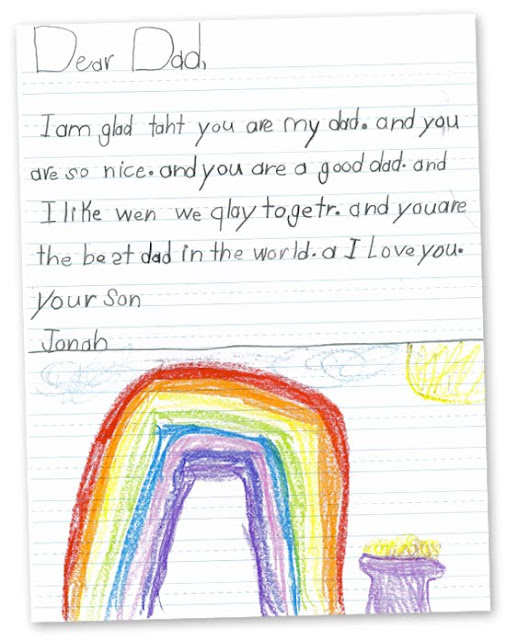 Dear Dad,
I am glad taht you are my dad. and you
are so nice. and you are a good dad. and
I like wen we qlay togetr. and youare
the best dad in the world. a I Love you.
your son
Jonah